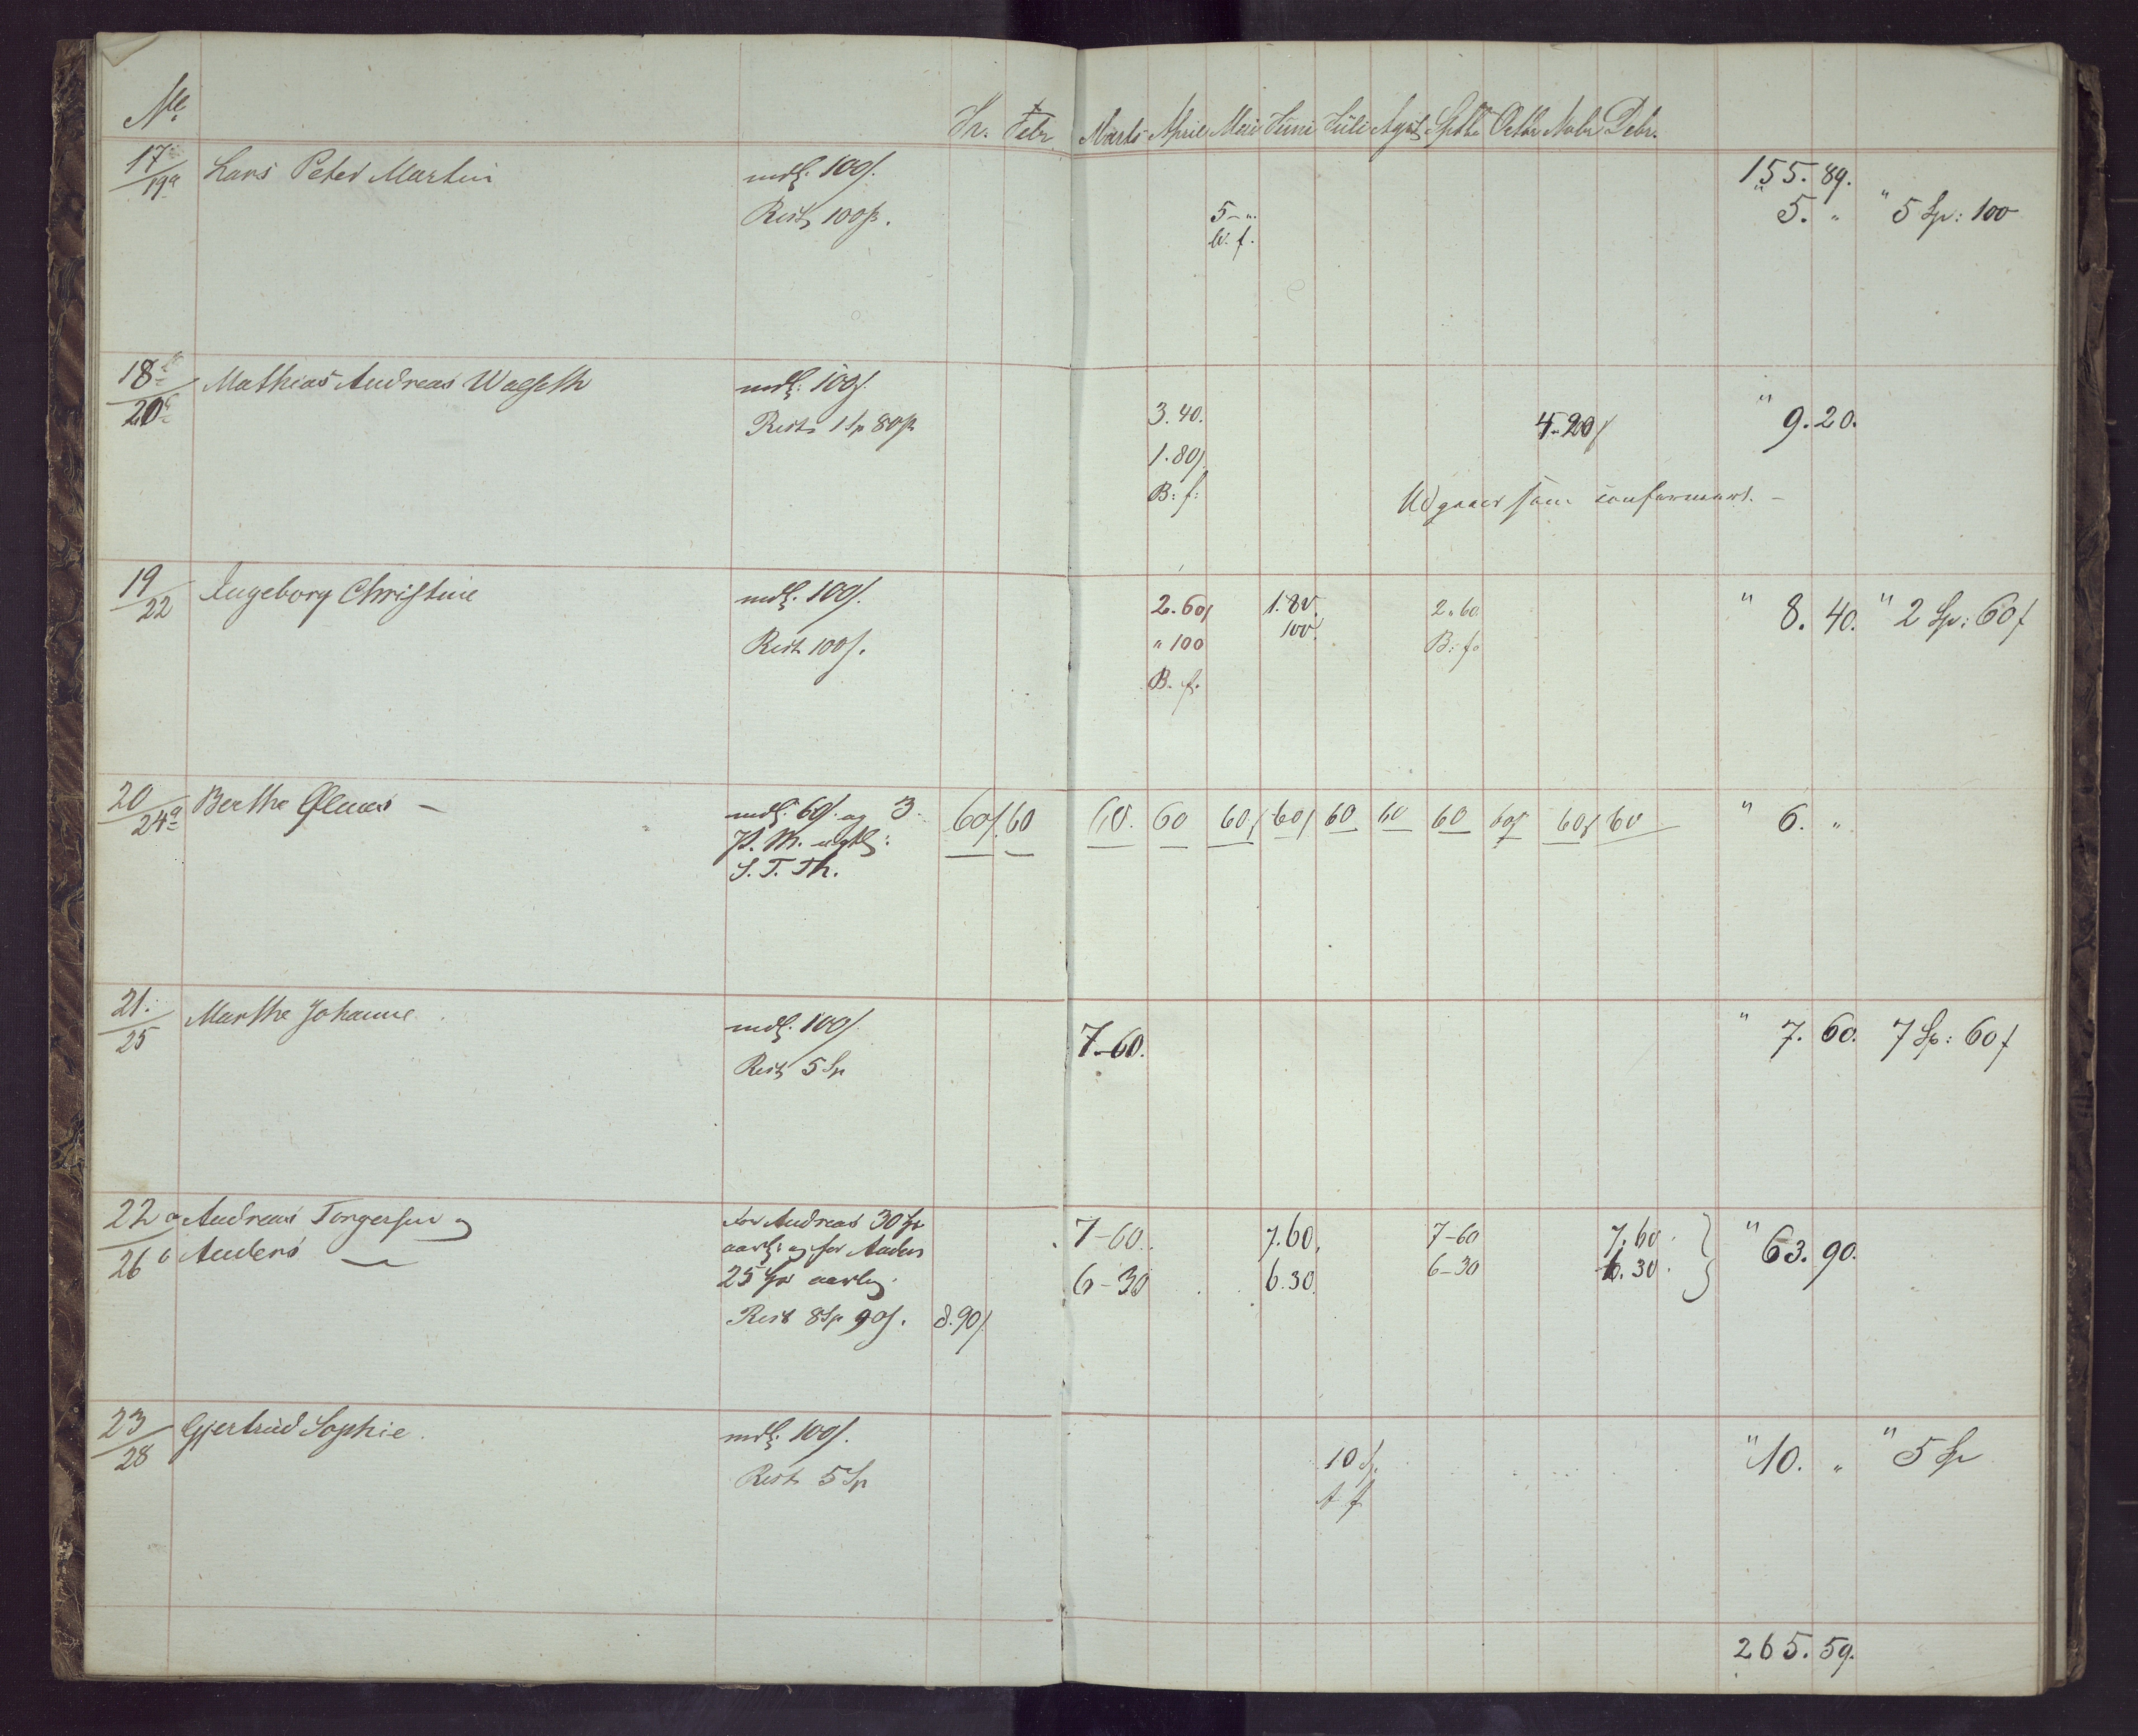 No. Jr. Febr. Marts April Mai Juni Juli Agst Septbr Octbr Nobr Debr.
155. 89.
17/19a Lars Peter Martin mdl. 100 ß.
Rest 100 ß. 5 - „. „ 5. „ „ 5 Sp: 100
B. f.
18/20 Mathias Andreas mdl. 100 ß.
Rest 1 Sp 80 ß 3. 40. 4. 20 ß „ 9. 20.
1. 80 ß
B: f: Udgaaer som confirmert. -
19/22 Ingeborg Christine mdl. 100 ß. 2. 60 ß 1. 80. 2. 60 „ 8. 40. „ 2 Sp: 60 ß
Rest 100 ß. „ 100 100. B: f.
B. f.
20/24a Berthe Olmes - mdl. 60 ß. og 3 60 ß. 60 60. 60 60 ß 60 ß 60 60 60 60 ß 60 ß 60 „ 6. „
S. T. Th.
21./25 Marthe Johanne. mdl. 100 ß. 7 - 60. „ 7. 60. 7 Sp: 60 ß
Rest 5 Sp
22/26 a Andreas Torgersen og for Andreas 30 Sp 7 - 60. 7. 60. 7 - 60 7. 60. „ 63. 90.
b Anders — aarl: og for Anders 6 - 30 6. 30. 6 - 30 6. 30.
25 Sp aarlig.
Rest 8 Sp 90 ß. 8. 90 ß.
23/28 Gjertrud Sophie. mdl. 100 ß. 10 Sp. „ 10. „ „ 5 Sp
Rest 5 Sp
265. 59.